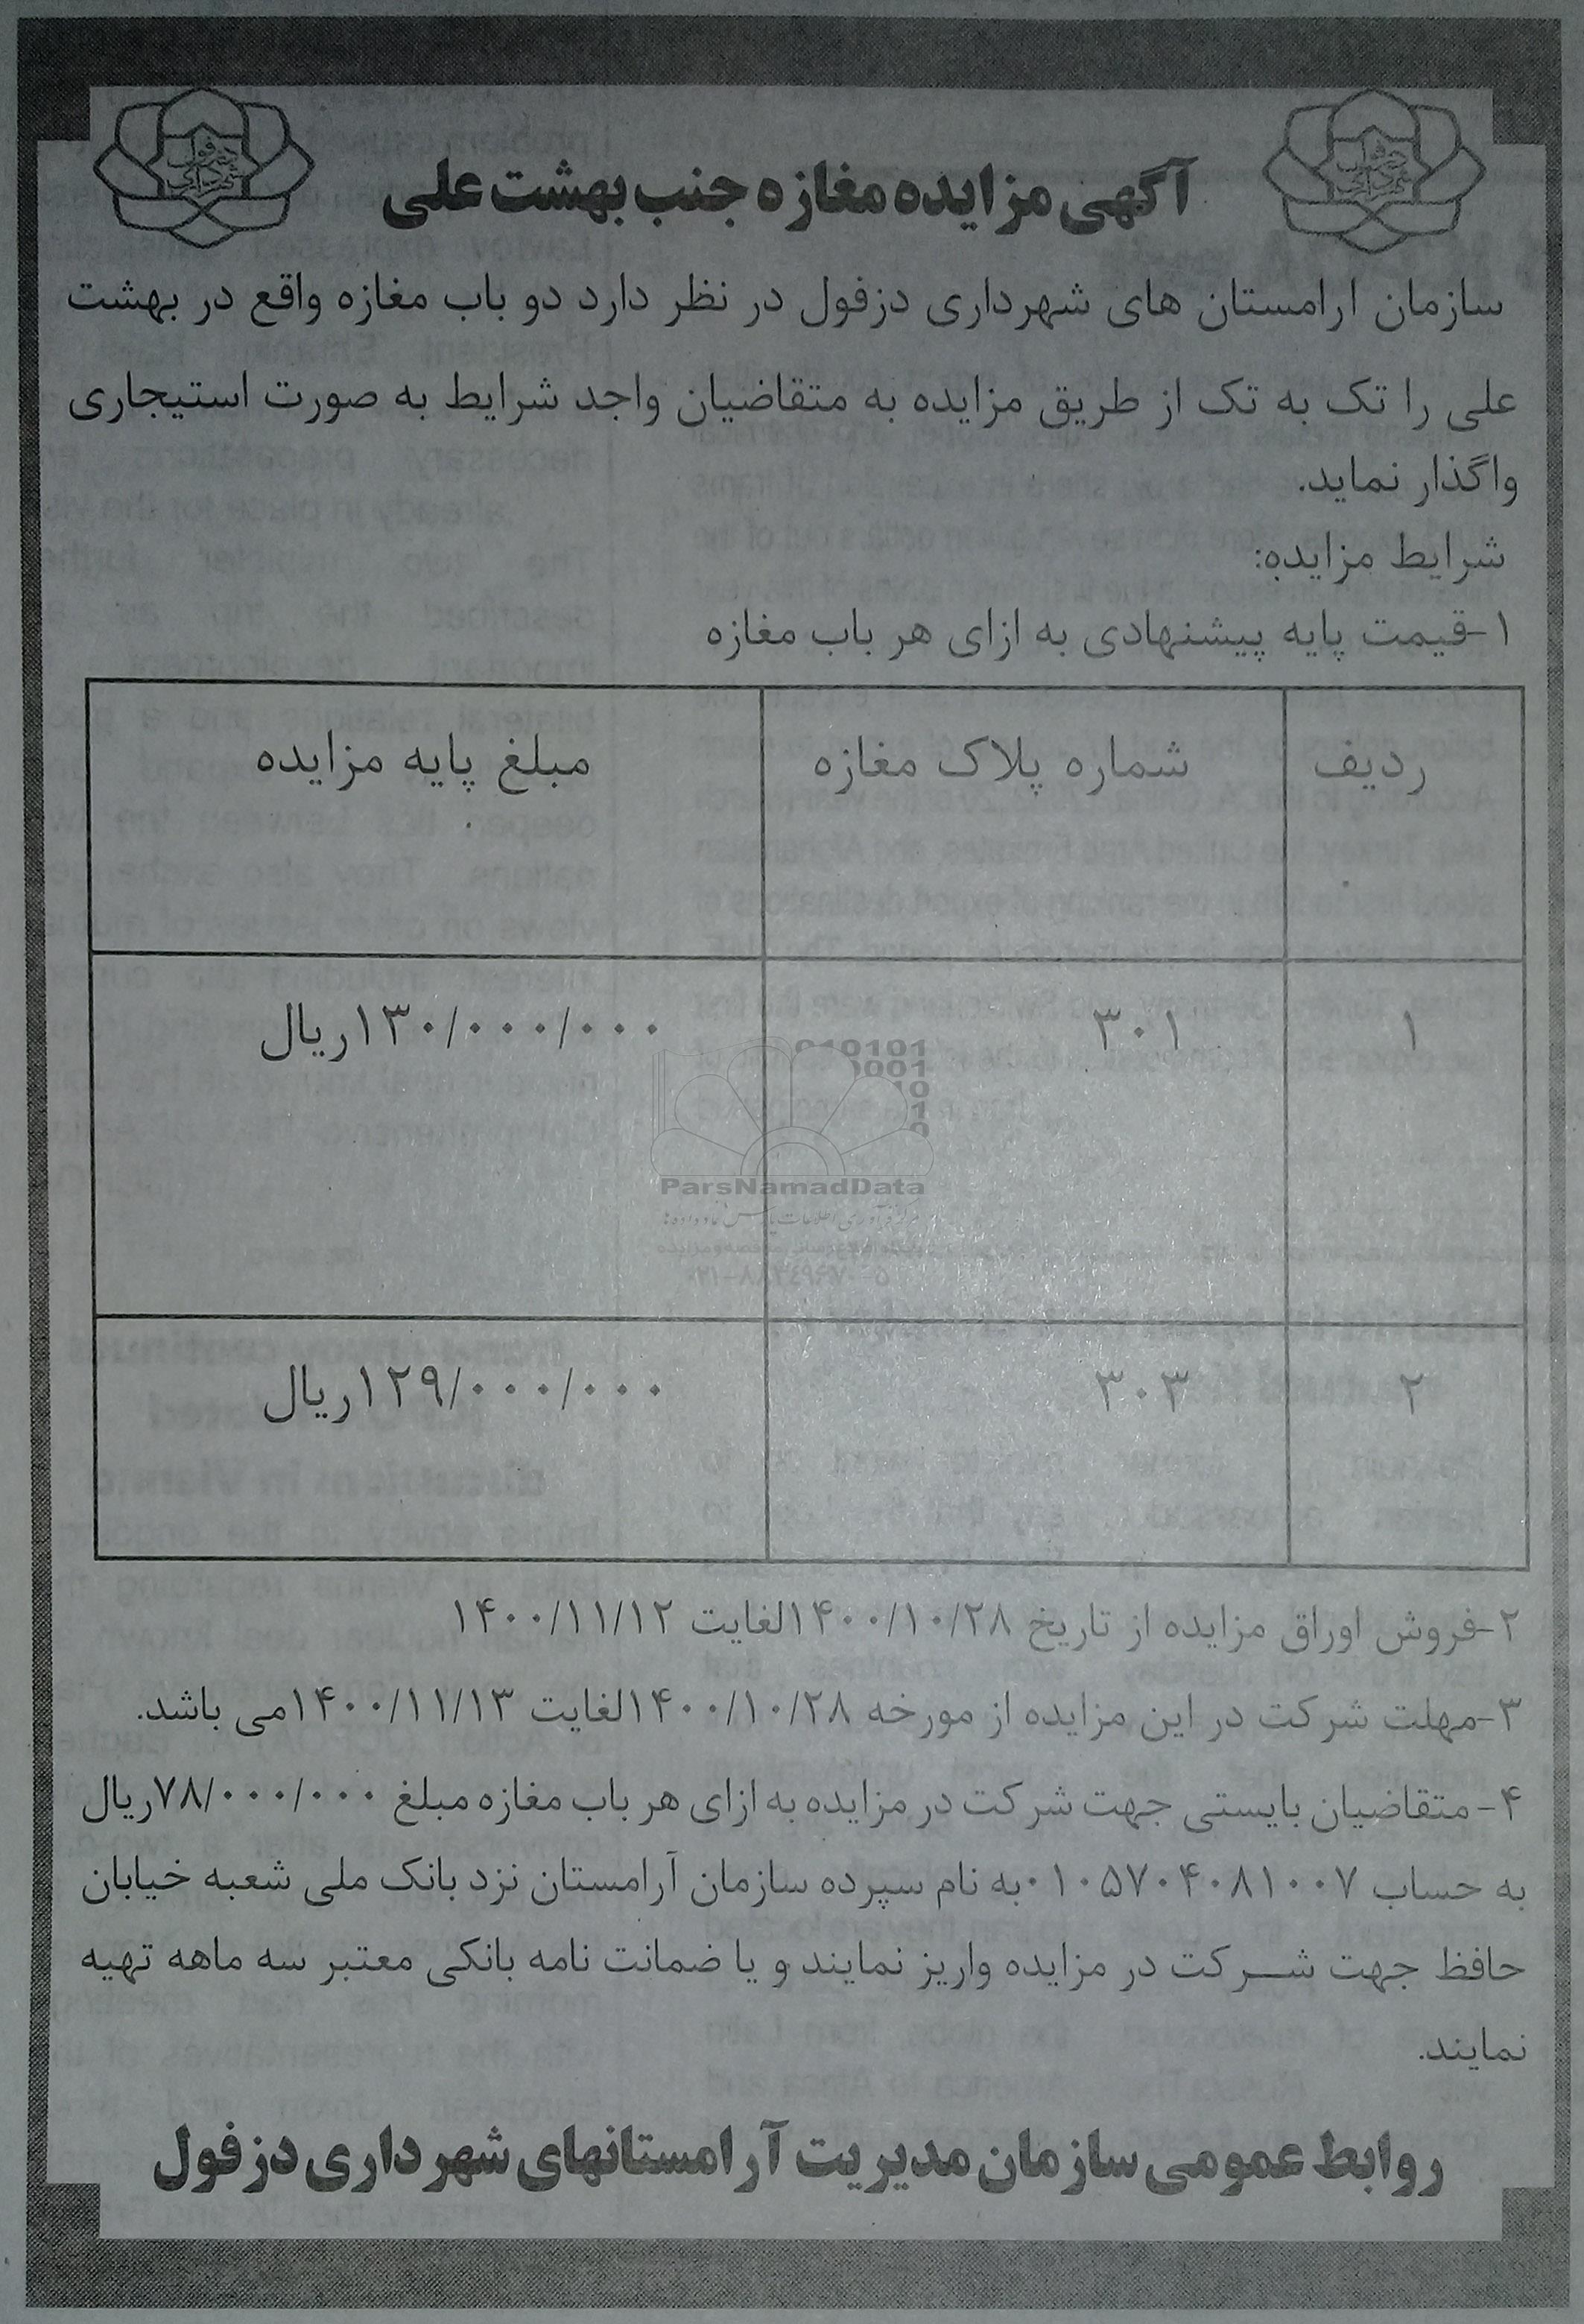 آگهی مزایده مغازه جنب بهشت علی
سازمان ارامستان های شهرداری دزفول در نظر دارد دو باب مغازه واقع در بهشت
علی را تک به تک از طریق مزایده به متقاضیان واجد شرایط به صورت استیجاری
واگذار نماید.
شرایط مزایده:
۱-قیمت پایه پیشنهادی به ازای هر باب مغازه
ردیف شماره پلاک مغازه مبلغ پایه مزایده
۱ ۳۰۱ ۱۳۰/۰۰۰/۰۰۰ریال
ParsNamadData
۲ ۳۰۳ ۱۲۹/۰۰۰/۰۰۰ریال
۲-فروش اوراق مزایده از تاریخ ۱۴۰۰/۱۰/۲۸لغایت ۱۴۰۰/۱۱/۱۲
۳-مهلت شرکت در این مزایده از مورخه ۱۴۰۰/۱۰/۲۸لغایت ۱۴۰۰/۱۱/۱۳می باشد.
۴- متقاضیان بایستی جهت شرکت در مزایده به ازای هر باب مغازه مبلغ ۷۸/۰۰۰/۰۰۰ریال
به حساب ۰۱۰۵۷۰۴۰۸۱۰۰۷به نام سپرده سازمان آرامستان نزد بانک ملی شعبه خیابان
حافظ جهت شرکت در مزایده واریز نمایند و یا ضمانت نامه بانکی معتبر سه ماهه تهیه
نمایند.
روابط عمومی سازمان مدیریت آرامستانهای شهرداری دزفول